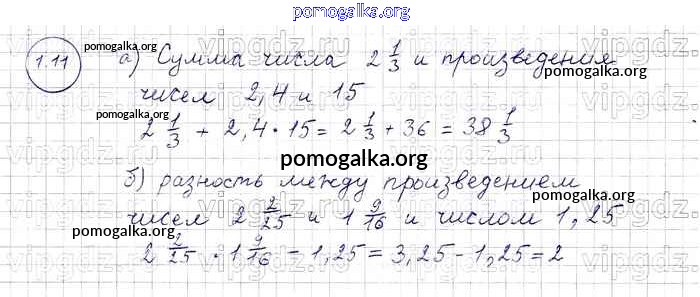 pomogalka.org
1.11
pomogalka.org
а) Сумма числа 2 1/3 и произведения
pomogalka.org
чисел 2,4 и 15
pomogalka.org
2 1/3 + 2,4 · 15 = 2 1/3 + 36 = 38 1/3
pomogalka.org
б) разность между произведением
pomogalka.org
чисел 2 2/25 и 1 9/16 и числом 1,25
pomogalka.org
2 2/25 · 1 9/16 - 1,25 = 3,25 - 1,25 = 2
pomogalka.org
vipgdz.ru